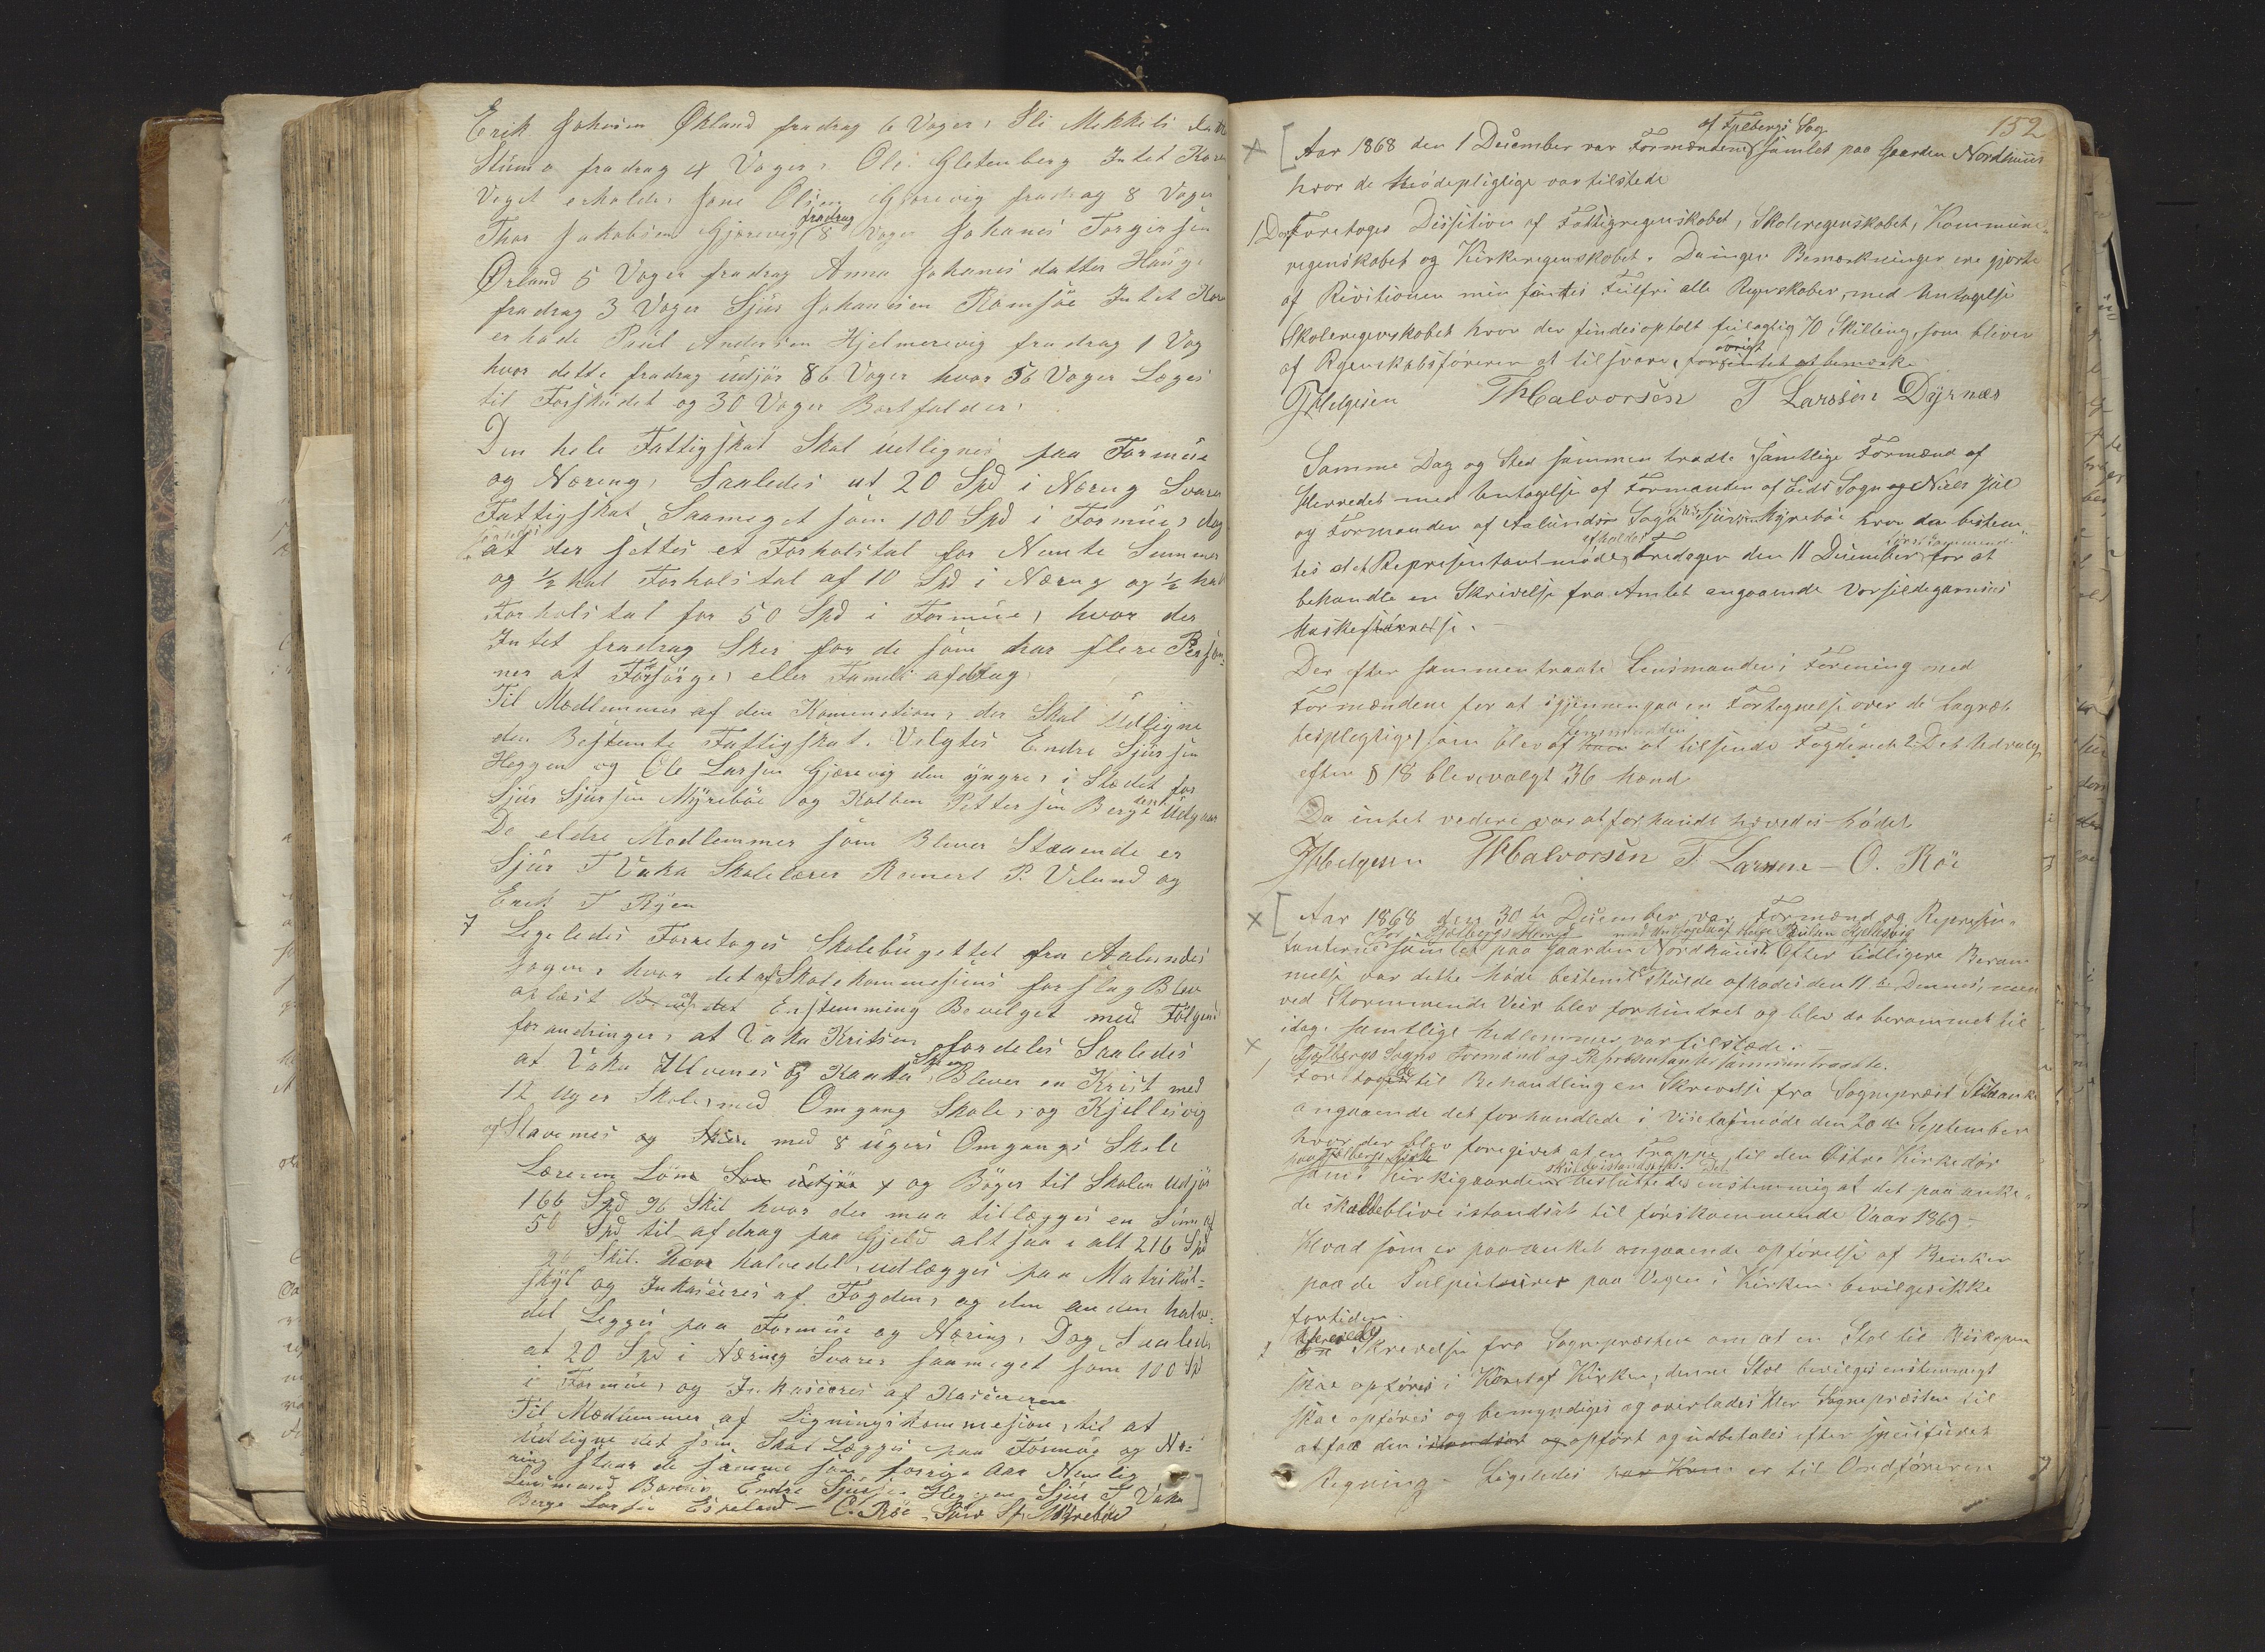 Erik Johnsen Økland fradrag 6 Voger, Eli Mekkels datter
Stumo fradrag 4 Voger, Ole Gletenberg Intet Korn
Veget erholder Jone Olsen Gjærevig fradrag 8 Voger
Thor Jakobsen Gjærevig fradrag 8 Voger Johanes Torgersen
Ørland 5 Voger fradrag Anna Johanes datter Hauge
fradrag 3 Voger Sjur Johannesen Ramsøe Intet Korn
erhode Paul Andersen Hjelmervig fradrag 1 Vog
hvor dette fradrag udjør 86 Voger hvor 56 Voger Læges
til Forskudet og 30 Voger Bortfalder.
Den hele Fattigskat Skal udlignes paa Formue
og Næring, Saaledes at 20 Spd i Næring Svarer
Fattigskat Saameget som 100 Spd i Formue, dog
saaledes at der settes et Forholstal for Nemte Summer
og ½ hal Forholstal af 10 Spd i Næring og ½ hal
Forholstal for 50 Spd i Formue, hvor der
Intet fradrag Sker for de som har flere Perso-
ner at Forsørge, eller Famili afdrag.
Til Medlemmer af den Komentions der Skal Udligne
den Bestemte Fattigskat. Velgtes Endre Sjursen
Heggen og Ole Larsen Gjærevig den yngre, i Stedet for
Sjur Sjursen Myrebøe og Kolben Pettersen Berge dersk Udgaar
De eldre Medlemmer som Blever Staaende er
Sjur T Vaka Skolelærer Remert P. Velund og
Erik T Ryen
7 Legeledes Forretoges Skolebugettet fra Aalundes
sogn, hvor det af Skolekommesjons forslag Blev
oplæst og det Enstemming Bevelget med Følgende
forandringer, at Vaka Kritsen fordeles Saaledes
at Vaka Ulvenes og Kaarhu Blever en Krist med
12 uger Skole, med Omgang Skole, og Kjellesvig
og Stavenes og med 8 ugers Omgangs Skole
Læreren Løn Som udjør og Bøger til Skolen udjør
166 Spd 96 Skil hvor der maa tillægges en Sum af
50 Spd til afdrag paa Gjeld altsaa i alt 216 Spd
96 Skil. hvor halvedel, udlægges paa Matrikul-
skyl og Inkaseeres af Fogden, og den anden halv-
del Legges paa Formue og Næring, Dog Saaledes
at 20 Spd i Næring Svarer saameget som 100 Spd
i Formue, og Inkaseeres af Kasereren
Til Medlemmer af Ligningskommesjon, til at
udligne det som Skal Lægges paa Formue og Næ-
ring staar de samme som forrige Aar Nemlig
Lensmand Endre Sjursen Heggen Sjur T Vaka
Berge Larsen Espeland – O. Røe Sjur Sj. Myrebøe
152
Aar 1868 den 1 December var Formændene af Fjelbergs Sog samlet paa Gaarden Nordhuus
hvor de Mødepligtige var tilstede
1/ Der Foretoges Dissition af Fattigregenskabet, Skoleregenskabet, Kommune-
regenskabet og Kirkeregenskabet. Da ingen Bemærkninger ere gjorte
af Rivitionen men fantes Feilfri alle Regenskaber, med Untagelse
Skoleregenskabet hvor der findes optalt feilagtig 70 Skilling, som bliver
af Regenskabsføreren at tilsvare, forøvrigt intet at bemærk
J Helgesen THalvorsen T Larssen Dyrnæs
Samme Dag og Sted sammen tradte Samtlige Formænd af
Herredet med Untagelse af Formanden af Eids Sogn og Niels Juel
og Formanden af Aalunds Sogn Sjursen Myrebøe hvor da bestem-
tes at Representantmøde afholdes Fredagen den 11 December førstkommende for at
behandle en Skrivelse fra Amtet angaaende Vorsildegarnenes
Maskestørrelse.
Der efter sammentraate Lensmanden i Forening med
Formændene for at igjennemgaa en Fortegnelse over de Lagret-
tespligtige, som blev af Lensmanden at tilsende Fogderiet 2 Det Udvalg
efter § 18 blev valgt 36 Mænd
Da intet vedere var at forhandle hævedes Mødet
JHelgesen THalvorsen T. Larssen O. Røe
Aar 1868 den 30te December var Formænd og Represen-
tanterne for Fjelbergs Herred med Untagelse af Helge Paulsen Kjelesvig samlet paa Gaarden Nordhuus. Efter tidligere Beram-
melse var dette Møde bestemt at skulde afholdes den 11te Dennes, men
ved Stormmende Veir blev forhindret og blev da berammet til
idag. Samtlige Medlemmer var tilstæde.
1 Fjelbergs Sogns Formænd og Repræsentanter sammentraadte.
Foretoges til Behandling en Skrivelse fra Sognepræst Skaanke
angaaende det forhandlede i Visitasmøde den 20de September
hvor der blev foregivet at en Trappe til den Østre Kirkedør
paa Fjelbergs Kirke samt Kirkigaarden skulde istandsettes. Det besluttedes enstemmig at det paaanke-
de skulde blive istandsat til førstkommende Vaar 1869.
Hvad som er paaanket angaaende opførelse af Benker
paa de Pulpiturer paa Vegen i Kirken bevilges ikke
fortiden.
2 Skrivelse fra Sognepræsten om at en Stol til Biskopen
skal opføres i Koret af Kirken, denne Stol bevilges enstemmigt
skal opføres og bemyndiges og overlades Her Sognepræsten til
at faa den istandsat og opført og udbetales efter specificeret
Regning. Ligeledes er til Ordføreren